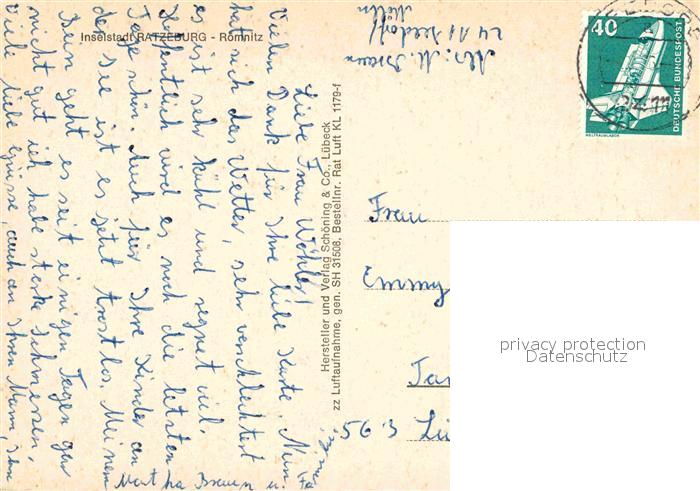 Inselstadt RATZEBURG - Römnitz
Liebe Frau Wöhler!
Vielen Dank für Ihre liebe Karte. Nun
hat sich das Wetter sehr verschlechtert
es ist sehr kühl und regnet viel.
Hoffentlich wird es noch die letzten
Tage schön. Auch für Ihre Kinder an
der See ist es jetzt trostlos. Meinem
Bein geht es seit einigen Tagen gar
nicht gut ich habe starke Schmerzen.
Viele liebe Grüsse, auch an Ihren Mann, Ihre
Martha Braun u.
Hersteller und Verlag Schöning & Co., Lübeck
zz Luftaufnahme, gen. SH 31508, Bestellnr. Rat Luft KL 1179-f
Abs. M. Braun
2411 Seedorf
Mölln
40
DEUTSCHE BUNDESPOST
WELTRAUMLABOR
Frau
Emmy
5613
privacy protection
Datenschutz